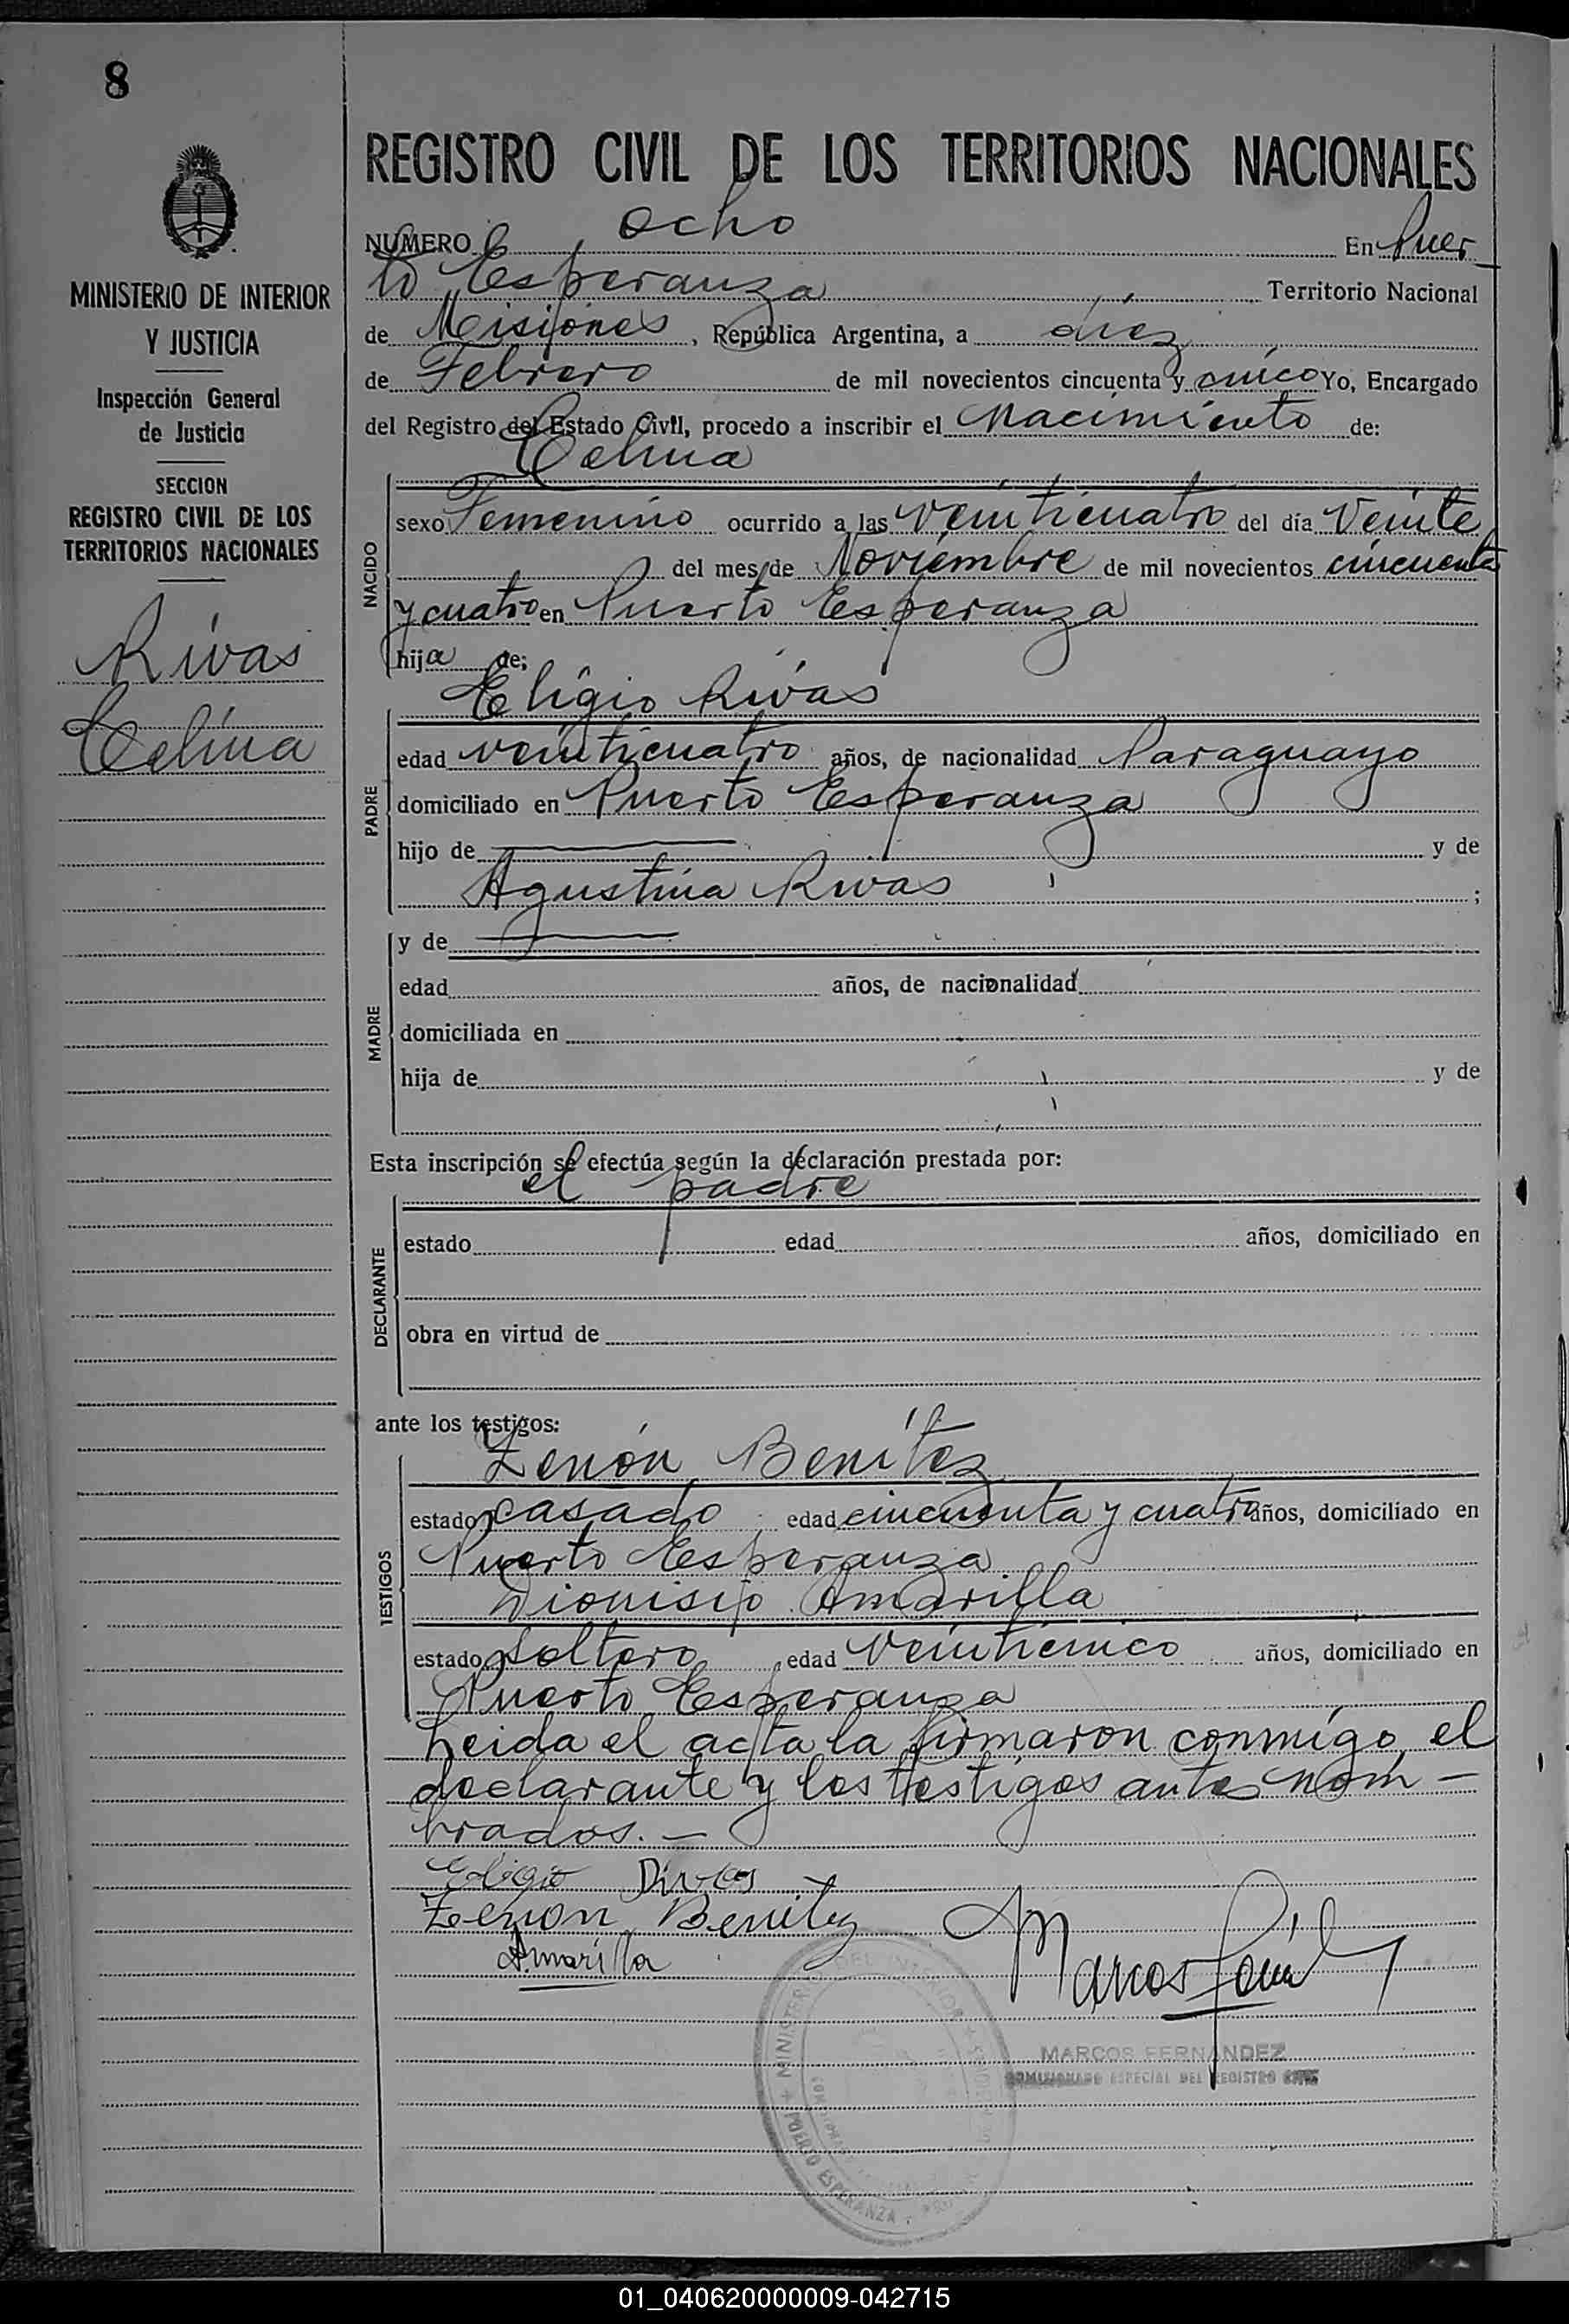 8
MINISTERIO DE INTERIOR
Y JUSTICIA
Inspección General
de Justicia
SECCION
REGISTRO CIVIL DE LOS
TERRITORIOS NACIONALES
Rivas
Celina
REGISTRO CIVIL DE LOS TERRITORIOS NACIONALES
NUMERO ocho En Puer
to Esperanza Territorio Nacional
de Misiones, República Argentina, a diez
de Febrero de mil novecientos cincuenta y cinco Yo, Encargado
del Registro del Estado Civil, procedo a inscribir el Nacimiento de:
Celina
NACIDO
sexo Femenino ocurrido a las veinticuatro del día Veinte
del mes de Noviembre de mil novecientos cincuenta
y cuatro en Puerto Esperanza
hija de;
Eligio Rivas
PADRE
edad veinticuatro años, de nacionalidad Paraguayo
domiciliado en Puerto Esperanza
hijo de — y de
Agustina Rivas ;
MADRE
y de —
edad años, de nacionalidad
domiciliada en
hija de y de
Esta inscripción se efectúa según la declaración prestada por:
el padre
DECLARANTE
estado edad años, domiciliado en
obra en virtud de
ante los testigos:
Zenón Benítez
TESTIGOS
estado casado edad cincuenta y cuatro años, domiciliado en
Puerto Esperanza
Dionisio Amarilla
estado soltero, edad Veinticinco años, domiciliado en
Puerto Esperanza
Leida el acta la firmaron conmigo, el
declarante y los testigos antes nom-
brados.—
Eligio Rivas
Zenon Benitez
A.marilla
Marcos
MARCOS FERNANDEZ
COMISIONADO ESPECIAL DEL REGISTRO CIVIL
MINISTERIO DEL INTERIOR
PUERTO ESPERANZA
01_040620000009-042715